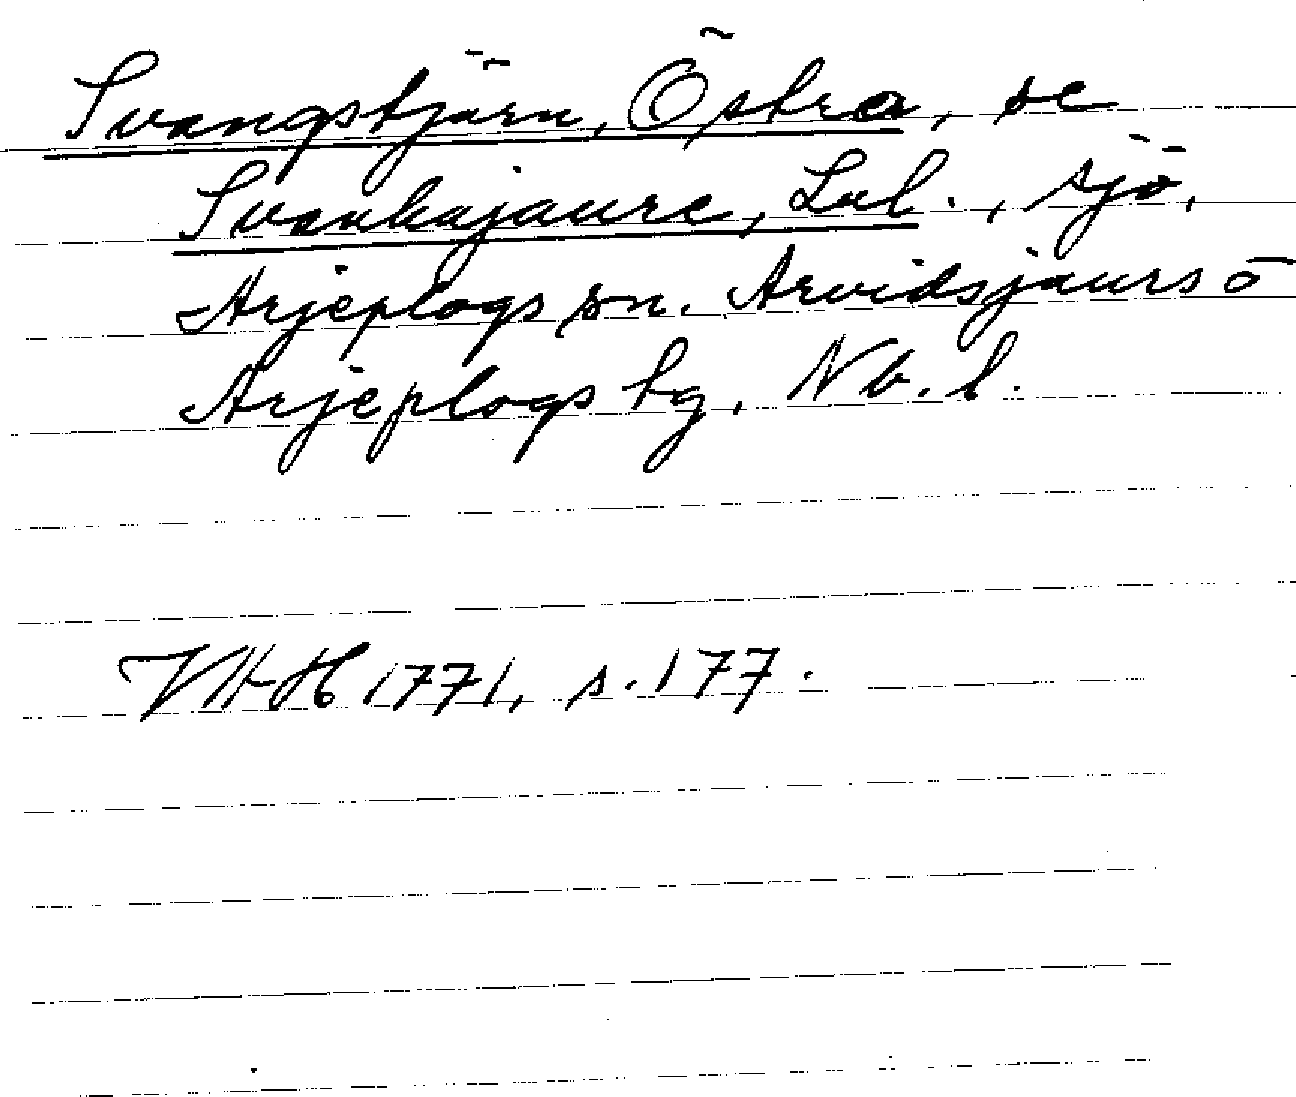 Svangstjärn, Östra, se
Svankajaure, Lul., sjö,
Arjeplogs sn. Arvidsjaurs o
Arjeplogs tg, Nb. l.
VHH 1771, s. 177.